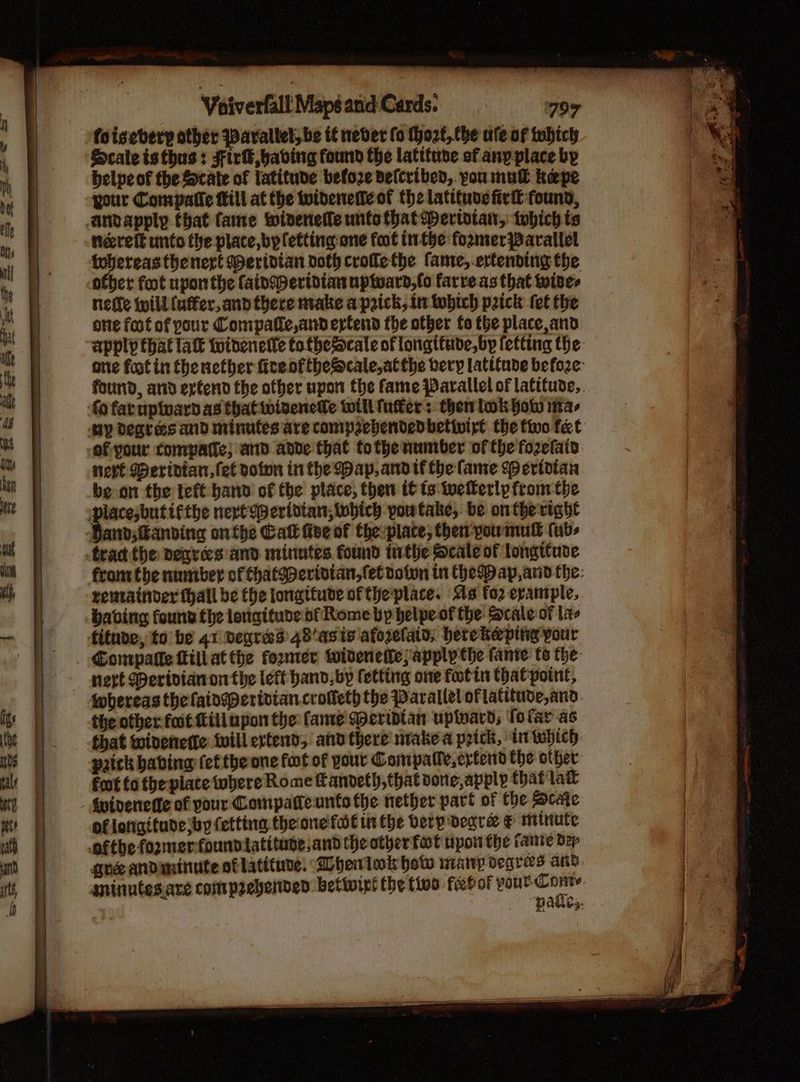 Vniverſall Maps and Cards. 797
ſo is every other Parallel, be it never ſo ſhort, the uſe of which
Scale is thus: Firſt, having found the latitude of any place by
helpe of the Scale of latitude before deſcribed, you muſt kéepe
your Compaſſe ſtill at the wideneſſe of the latitude firſt found,
and apply that ſame wideneſſe unto that Meridian, which is
néereſt unto the place, by ſetting one foot in the former Parallel
whereas the next Meridian doth croſſe the ſame, extending the
other foot upon the ſaid Meridian upward, ſo farre as that wide-
neſſe will ſuffer, and there make a prick, in which prick ſet the
one foot of your Compaſſe, and extend the other to the place, and
apply that laſt wideneſſe to the Scale of longitude, by ſetting the
one foot in the nether ſide of the Scale, at the very latitude before
found, and extend the other upon the ſame Parallel of latitude,
ſo far upward as that wideneſſe will ſuffer: then look how ma-
ny degrées and minutes are comprehended betwixt the two féet
of your compaſſe, and adde that to the number of the foreſaid
next Meridian, ſet down in the Map, and if the ſame Meridian
be on the left hand of the place, then it is weſterly from the
place, but if the next Meridian, which you take, be on the right
Hand, ſtanding on the Eaſt ſide of the place, then you muſt ſub-
tract the degrées and minutes found in the Scale of longitude
from the number of that Meridian, ſet down in the Map, and the
remainder ſhall be the longitude of the place. As for example,
having found the longitude of Rome by helpe of the Scale of la-
titude, to be 41 degrées 48' as is aforeſaid, here kéeping your
Compaſſe ſtill at the former wideneſſe, apply the ſame to the
next Meridian on the left hand, by ſetting one foot in that point,
whereas the ſaid Meridian croſſeth the Parallel of latitude, and
the other foot ſtill upon the ſame Meridian upward, ſo far as
that wideneſſe will extend, and there make a prick, in which
prick having ſet the one foot of your Compaſſe, extend the other
foot to the place where Rome ſtandeth, that done, apply that laſt
wideneſſe of your Compaſſe unto the nether part of the Scale
of longitude, by ſetting the one foot in the very degrée & minute
of the former found latitude, and the other foot upon the ſame de-
grée and minute of latitude. Then look how many degrées and
minutes are comprehended betwixt the two féet of your Com-
paſſe,